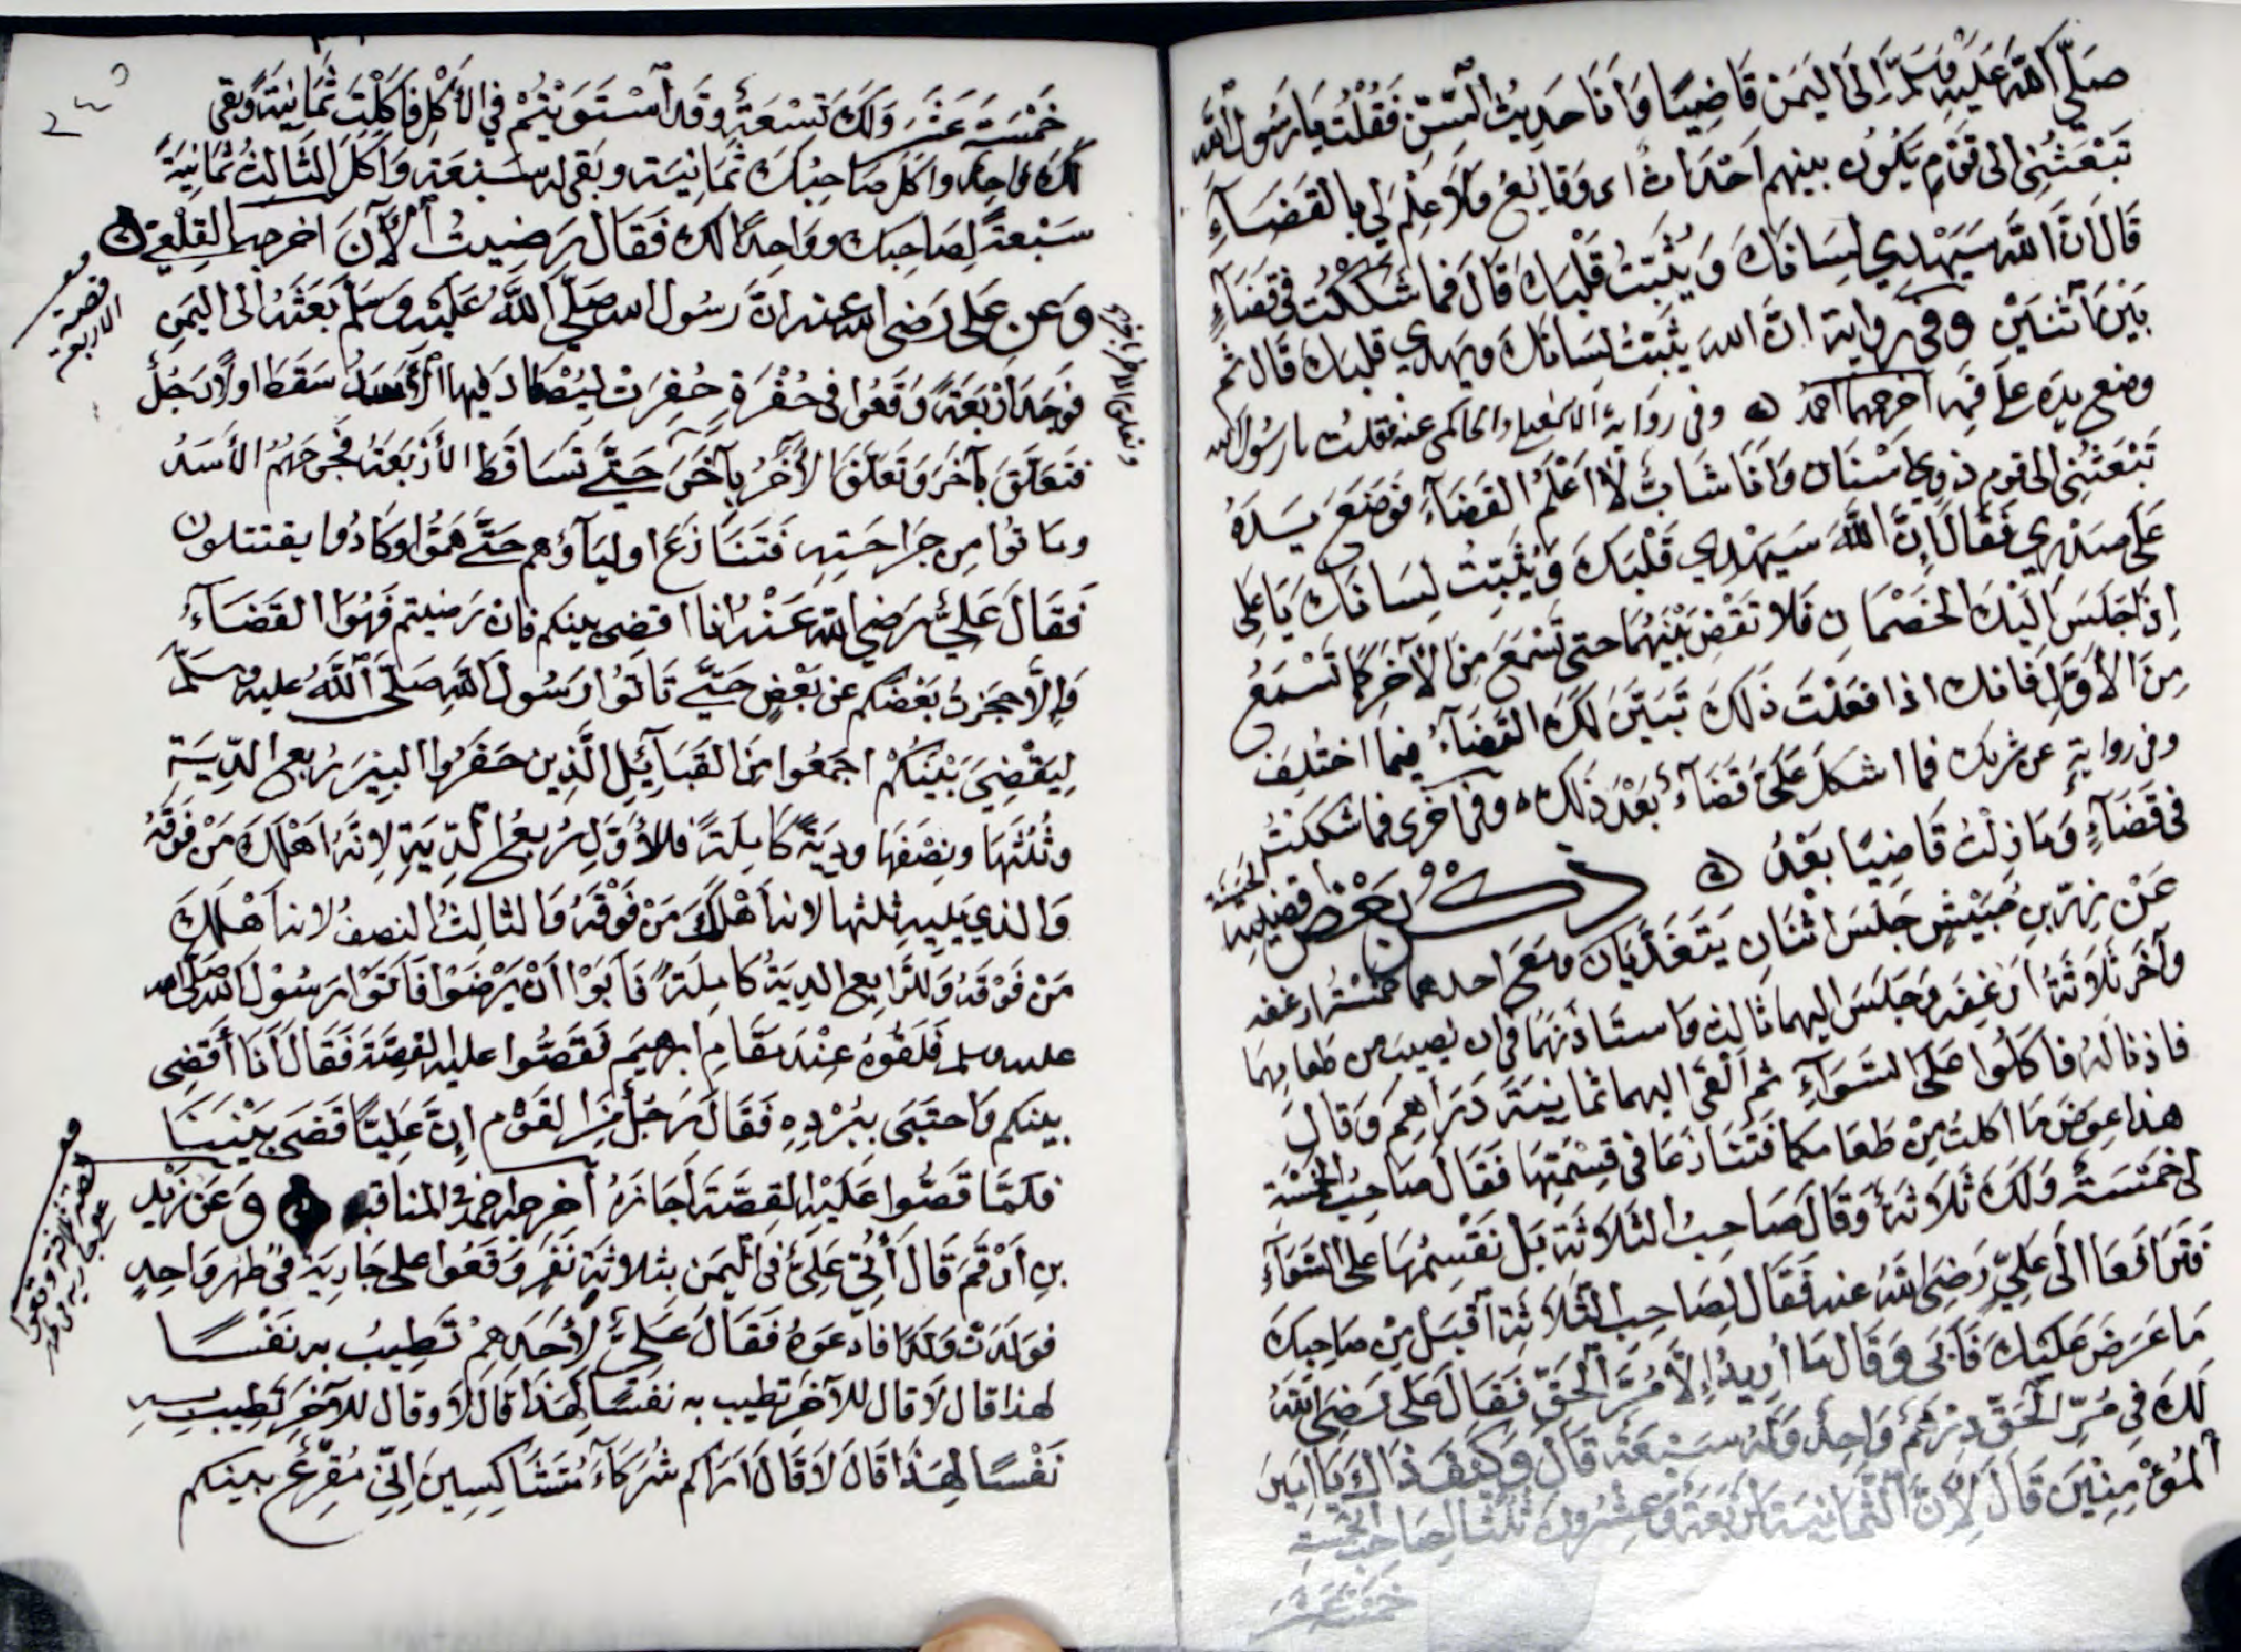 صَلَّى اللَّهُ عَلَيْهِ وَسَلَّمَ إِلَى الْيَمَنِ قَاضِيًا وَأَنَا حَدِيثُ السِّنِّ فَقُلْتُ يَا رَسُولَ اللَّهِ
تَبْعَثُنِي إلى قَوْمٍ يَكُونُ بينهم أَحْدَاثٌ اى وَقَايِعُ وَلَا عِلْمَ لِي بِالْقَضَاءِ
قَالَ إنَّ اللَّهَ سَيَهْدِي لِسَانَكَ وَيُثَبِّتُ قَلْبَكَ قَالَ فَمَا شَكَكْتُ فِي قَضَاءٍ
بَيْنَ اثْنَيْنِ وفي رواية انَّ الله يُثَبِّتُ لسَانَكَ ويهدي قلبك قال ثم
وضع يده على فمه اخرجهما احمد وفي رواية الاسمعيلي والحاكمي عنه فقلت يا رسُول الله
تَبْعَثُنِي الى قوم ذوى اسْنَان وَأنَا شَابٌّ لَا أَعْلَمُ القَضَاءَ فَوَضَعَ يَدَهُ
عَلَى صَدْرِي فَقَالَ إِنَّ اللَّهَ سَيَهْدِي قَلْبَكَ وَيُثَبِّتُ لِسَانَكَ يَا عَلى
إِذَا جَلَسَ إِلَيْكَ الخَصْمَانِ فَلا تَقْضِ بَيْنَهُمَا حتى تَسْمَعَ مِنَ الْآخَرِ كَمَا تَسْمَعُ
مِنَ الأَوَّلِ فَانك اذا فَعَلْتَ ذَلِكَ تَبَيَّنَ لَكَ القَضَاءُ فيما اختُلِفَ
وفى رواية عن شريك فما اشكَلَ عَلَىَّ قَضَاءٌ بَعْدَ ذَلِكَ وفى اخرى فما شككتُ
فى قَضَاءٍ وَمَا زِلْتُ قَاضِيًا بَعْدُ ذكر بَعْض اقضيته الحَسَنَة
عَنْ زِرِّ بنِ حُبَيْشٍ جَلَسَ اثْنَانِ يَتَغَدَّيَانِ ومَعَ احدهما خمسَةُ ارغفه
وآخَرَ ثَلَاثَةُ أَرْغِفَه وَجَلَسَ اليهما ثَالِثٌ وَاستَأذَنَهُمَا فى ان يُصيبَ من طعَامِهما
فاذنَا لَهُ فَأَكَلُوا عَلَى السَّوَاءِ ثم أَلْقَى اليهما ثَمَانِيَةَ دَرَاهِمَ وَقَالَ
هذا عِوَضُ مَا اكلتُ مِنْ طَعَامكما فَتَنَازَعَا فى قِسْمَتِهَا فَقَالَ صَاحِبُ الخَمْسَةِ
لى خَمْسَةٌ وَلَكَ ثَلَاثَةٌ وَقَالَ صَاحِبُ الثَّلَاثَةِ بَلْ نَقْسِمُهَا عَلَى السَّوَاءِ
فَتَرَافَعَا الَى عَلِيٍّ رَضِيَ اللَّهُ عنه فَقَالَ لِصَاحِبِ الثَّلاثَةِ اقْبَلْ مِنْ صَاحِبِكَ
مَا عَرَضَ عَلَيْكَ فَأَبَى وَقَالَ مَا أُرِيدُ إِلَّا مُرَّ الْحَقِّ فَقَالَ عَلِى رَضِيَ اللَّهُ
لَكَ فى مُرِّ الْحَقِّ دِرْهَمٌ وَاحِدٌ وَلَهُ سَبْعَةٌ قَالَ وَكَيْفَ ذَاكَ يَا أَمِيرَ
الْمُؤْمِنِينَ قَالَ لِأَنَّ الثَّمَانِيَةَ أَرْبَعَةٌ وَعِشْرُونَ ثُلُثًا لِصَاحِبِ الخَمْسَةِ
خَمْسَةَ عَشَرَ
خَمْسَةَ عَشَرَ وَلَكَ تِسْعَةٌ وقد اسْتَوَيْتُمْ فِي الأَكْلِ فَأَكَلْتَ ثَمَانِيَةً وَبَقى
لَكَ وَاحِدٌ وأكل صَاحِبُكَ ثَمَانِيَة وبقى له سَبْعَة وَأَكَلَ الثَّالِثُ ثَمَانِيَةً
سَبْعَةً لِصَاحِبِكَ وَوَاحِدًا لَكَ فَقَالَ رَضِيتُ الْآنَ اخرجه القلعى
وَعن عَلى رَضى الله عنه انَّ رَسُول الله صَلَّى اللَّهُ عَلَيْهِ وَسَلَّمَ بَعَثَهُ الى اليَمَنِ
فَوَجَدَ أَرْبَعَةً وَقَعُوا فى حُفْرَةٍ حُفِرَتْ لِيُصْطَادَ فيها الأَسَدُ سَقَطَ اولًا رَجُلٌ
فتَعَلَّقَ بآخَرَ وَتَعَلَّقَ الْآخَرُ بِآخَرَ حَتَّى تَسَاقَطَ الأَرْبَعَةُ فَجَرَحَهُمُ الأَسَدُ
وَمَاتُوا مِن جِرَاحَتِهِ فَتَنَازَعَ اوليَاؤهم حَتَّى هَمُّوا وَكَادُوا يقتتلون
فَقَالَ عَلِيٌّ رَضِيَ اللَّهُ عَنْهُ انا اقضى بينكم فان رَضيتم فَهُوَ القَضَاءُ
وَإِلَّا حجزتُ بَعْضَكم عن بَعْضٍ حَتَّى تَأتُوا رَسُولَ اللَّهِ صَلَّى اللَّهُ عليه وسَلَّمَ
لِيَقْضِيَ بَيْنَكُمْ اجمَعُوا مِنَ القَبَائِلِ الَّذِين حَفَرُوا البيرَ رُبعَ الدِّيَةِ
وثُلُثَهَا ونِصْفَهَا ودِيَةً كَامِلَةً فَلِلأَوَّلِ رُبعُ الدِّيَةِ لِانَّهُ اهْلَكَ مَنْ فَوْقَهُ
وَالذي يَلِيهِ ثلثها لانه أَهْلَكَ مَنْ فَوْقَهُ وَالثالِثُ النصفُ لانه أَهْلَكَ
مَنْ فَوْقَهُ وَللرَّابع الديَةُ كَامِلَةً فَأَبَوْا أَنْ يَرْضَوْا فَأَتَوْا رَسُولَ اللَّهِ صَلَّى الله
عليه وسلم فَلَقُوهُ عِنْدَ مَقَامِ ابرهيم فَقَصُّوا عليه القِصَّةَ فَقَالَ أَنَا أَقْضِى
بينكم وَاحْتَبَى بِبُرْدِهِ فَقَالَ رَجُلٌ مِنَ القَوْمِ إِنَّ عَلِيًّا قَضَى بَيْنَنَا
فلمَّا قَصُّوا عَلَيْهِ القِصَّةَ أَجَازَهُ أخرجه احمد فى المناقب وَعَن زَيْدِ
بنِ أَرْقَمَ قَالَ أُتِيَ عَلِيٌّ فِى الْيَمَنِ بثلاثَةِ نَفَرٍ وَقَعُوا على جَارِيَةٍ فِى طُهرٍ وَاحِدٍ
فَوَلَدَتْ وَلَدًا فادَّعَوْهُ فَقَالَ عَلِيٌّ لأَحَدِهِمْ تَطِيبُ به نَفْسًا
لهذا قال لَا قال للآخَرِ تطيب به نفسًا لِهَذَا قَالَ لَا وقال للآخَرِ تَطِيبُ به
نَفْسًا لِهَذَا قَالَ لَا قَالَ أَرَاكم شُرَكَاءَ مُتَشَاكِسِينَ إِنِّى مُقْرِعٌ بينكم
وتعلق الآخر بآخر
قصة
الاربعة